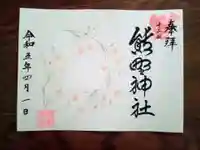 奉拝
熊野神社
令和五年四月一日